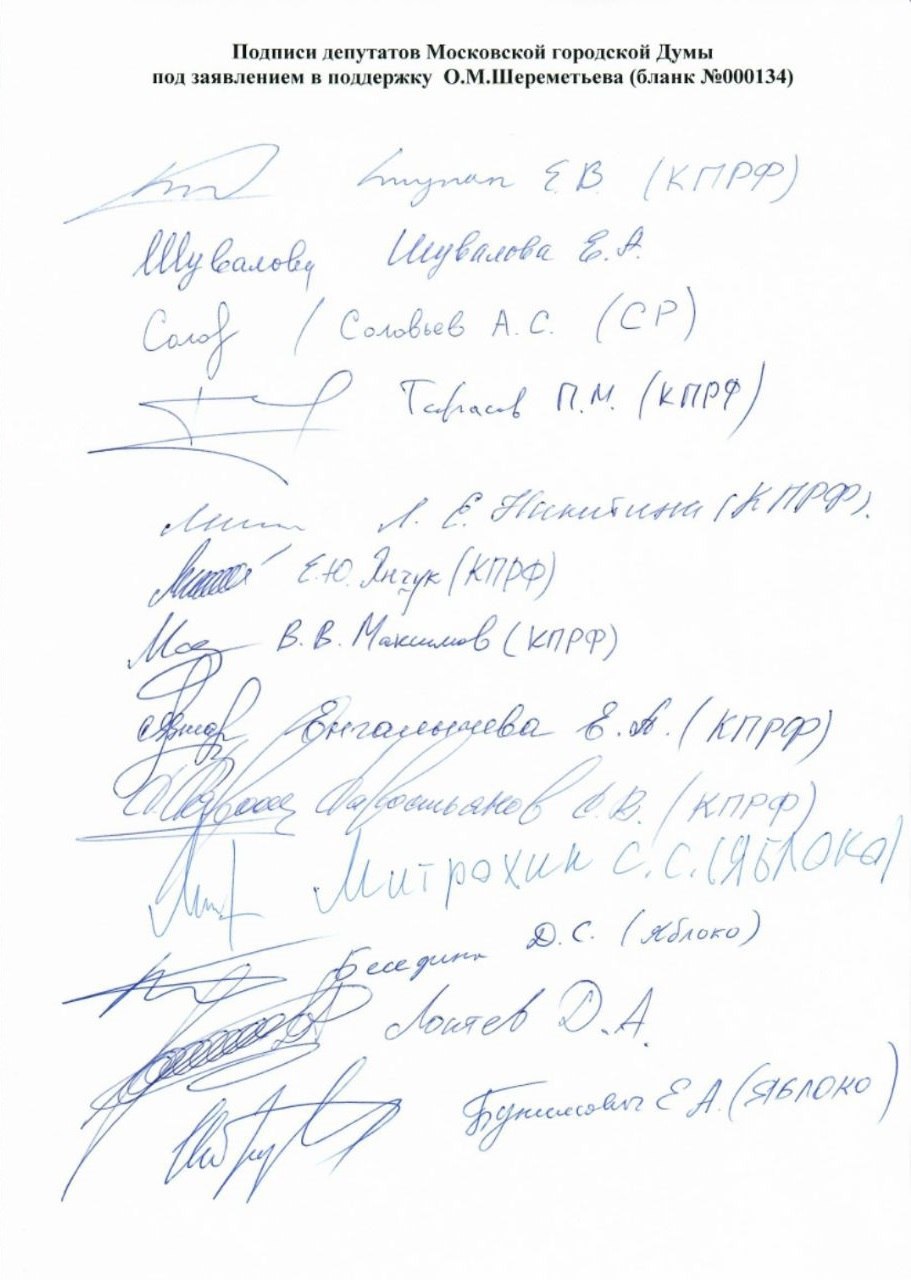 Подписи депутатов Московской городской Думы
под заявлением в поддержку О.М.Шереметьева (бланк №000134)
Ступин Е.В. (КПРФ)
Шувалову Шувалова Е.А.
Солов / Соловьев А.С. (СР)
Тарасов П.М. (КПРФ)
Л. Е. Никитина (КПРФ).
Е.Ю. Янчук (КПРФ)
В.В. Максимов (КПРФ)
Енгалычева Е.А. (КПРФ)
Савостьянов С.В. (КПРФ)
Митрохин С.С. (ЯБЛОКО)
Беседина Д.С. (Яблоко)
Локтев Д.А.
Бунимович Е.А. (ЯБЛОКО)